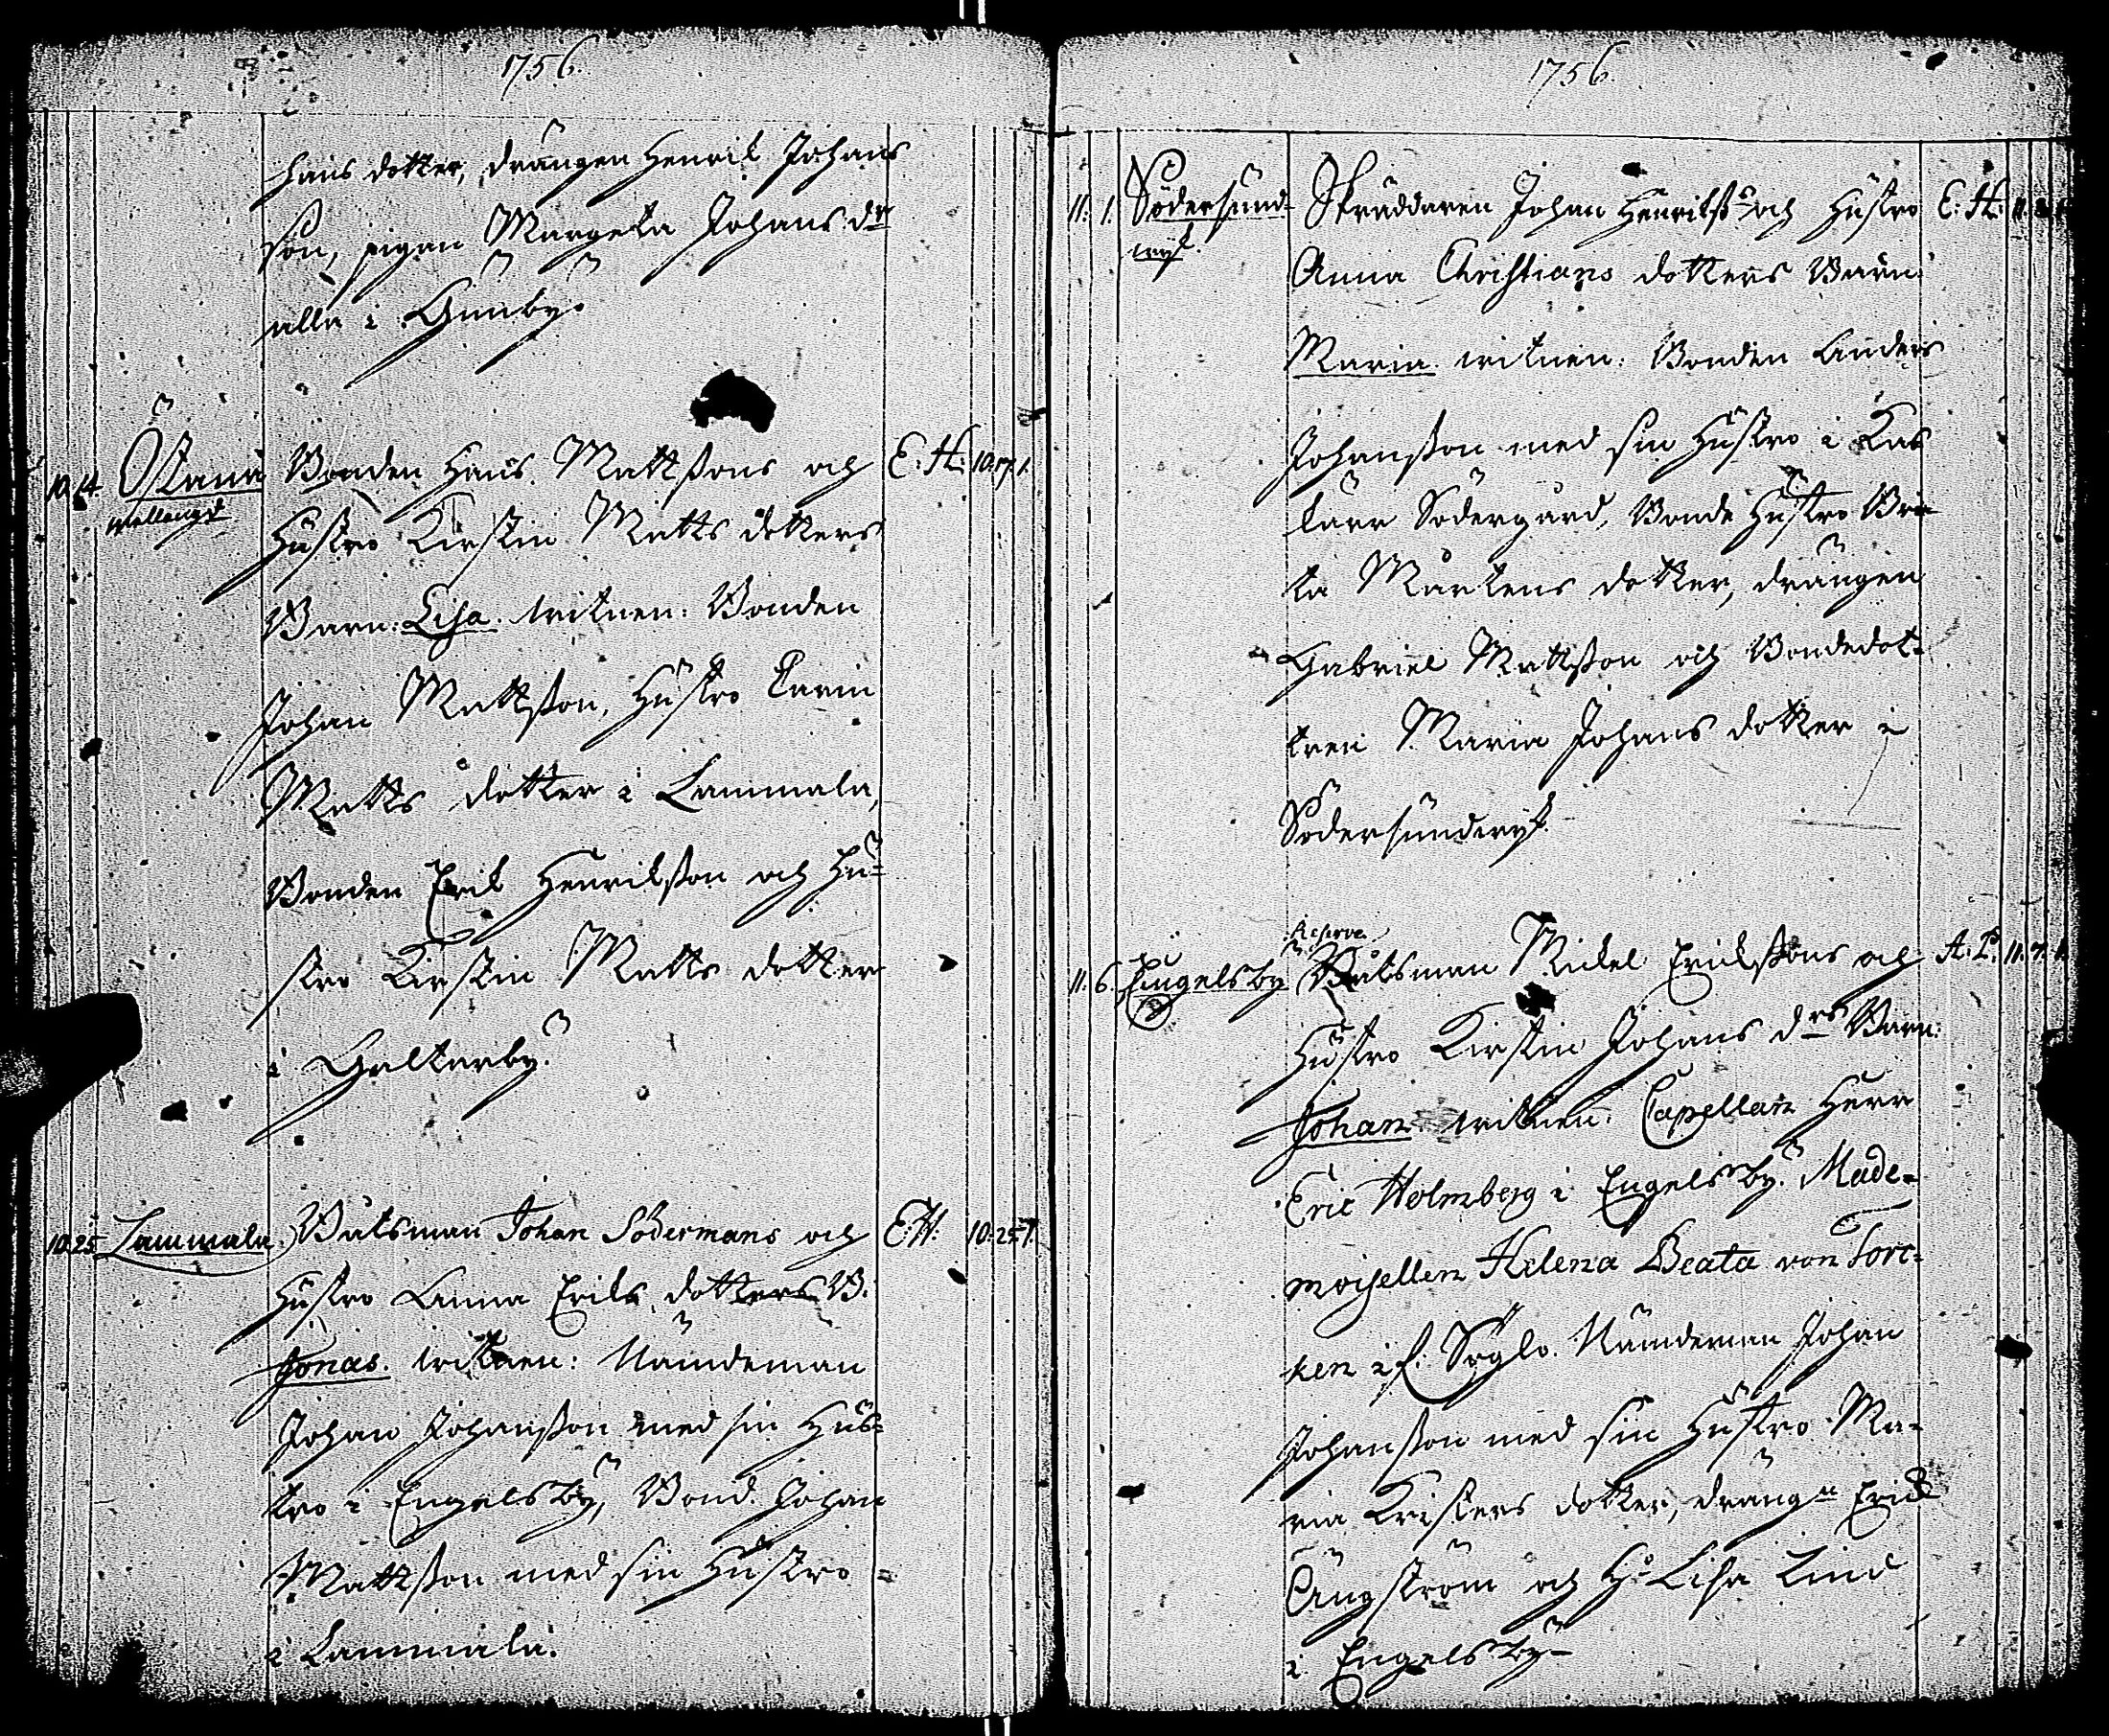 1756.
hans dotter, drängen Henrik Johans
son, pigan Margeta Johans dr
alla i Gunby.
10. 14. Östanå Bonden Hans Mattssons och E. H. 10. 17. 1.
mellangd Hustro Kirstin Matts dotters
Barn: Lisa. witnen: Bonden
Johan Mattsson, Hustro Carin
Matts dotter i Lammala,
Bonden Erik Henriksson och Hu=
stro Kirstin Matts dotter
i Galtarby.
10. 25 Lammala Båtsman Johan Södermans och E. H. 10. 25. 1.
Hustro Anna Eriks dotters B.
Jonas. witnen: Nämdeman
Johan Johansson med sin Hus=
tro i Engelsby, Bond. Johan
Mattsson med sin Hustro =
i Lammala.
1756.
11. 1. Södersund= Skräddaren Johan Henrikss och Hustro E. H. 11.
wik. Anna Christians dotters Barn:
Maria. witnen: Bonden Anders
Johansson med sin Hustro i Kas
kärr Södergård, Bonde Hustro Bri
ta Mårtens dotter, drängen
Gabriel Mattsson och Bondedot=
tren Maria Johans dotter i
Södersundwik.
Reserve
11. 6. Engelsby Båtsman Mickel Erikssons och A. P. 11. 7. 1.
Hustro Kirstin Johans drs Barn:
Johan. witnen: Capellan Herr
Eric Holmberg i Engelsby. Made=
moisellen Helena Beata von Torc=
ken i f. Söglo. Nämdeman Johan
Johansson med sin Hustro Ma=
ria Kristers dotter, dräng n Erick
Ångström och H. Lisa Lind
i Engelsby